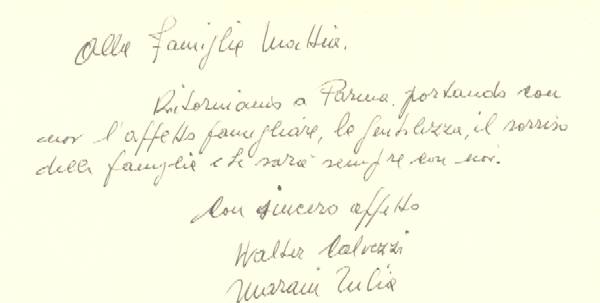 Alla Famiglia Mattia.
Ritorniamo a Parma portando con
noi l'affetto famigliare, la gentilezza, il sorriso
della famiglia che sarà sempre con noi.
Con sincero affetto
Walter Calvezzi